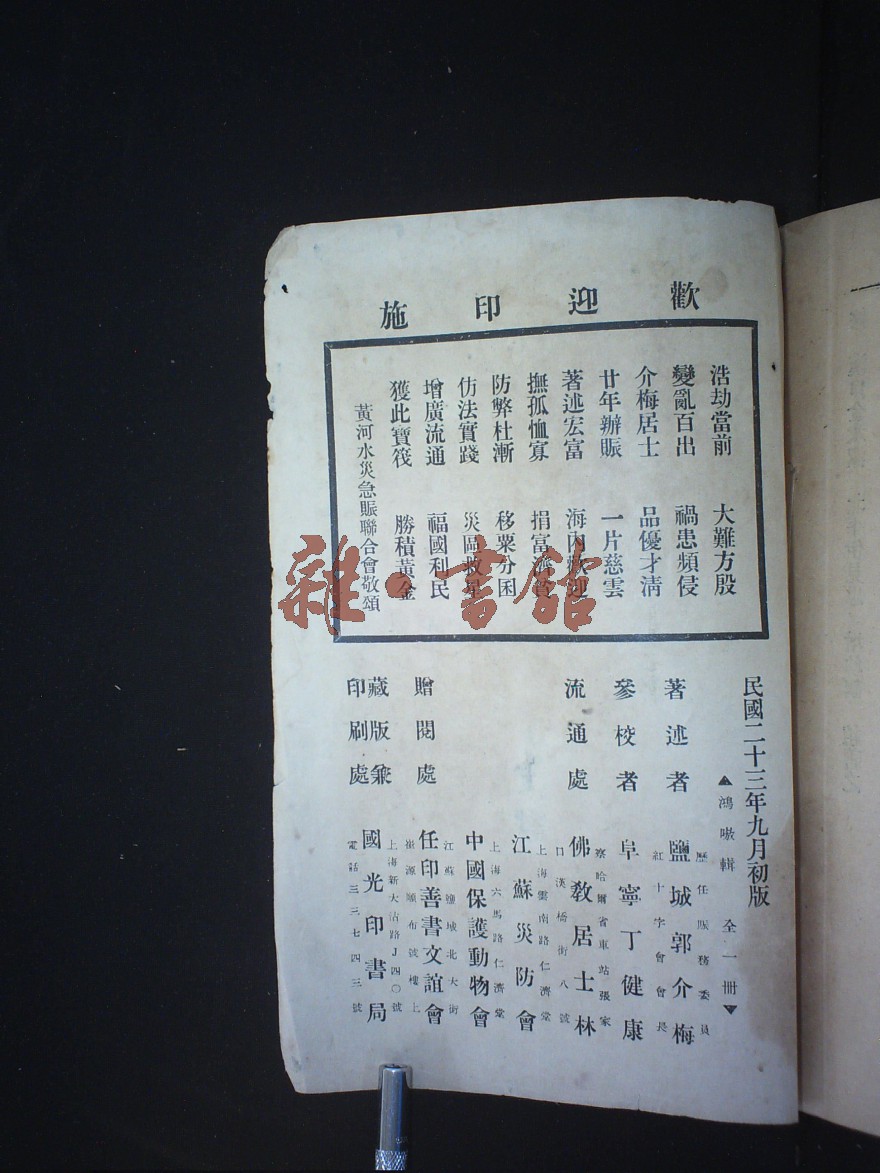 歡迎印施
浩劫當前　大難方殷
變亂百出　禍患頻侵
介梅居士　品優才淸
廿年辦賑　一片慈雲
著述宏富　海內歡迎
撫孤恤寡　捐富濟貧
防弊杜漸　移粟分困
仿法實踐　災區救星
增廣流通　福國利民
獲此寶筏　勝積黃金
黃河水災急賑聯合會敬頌
民國二十三年九月初版
▲鴻嗷輯　全一冊▼
著述者
歷任賑務委員
紅十字會會長
鹽城郭介梅
參校者　阜寧丁健康
流通處
察哈爾省車站張家
口漢橋街八號
佛敎居士林
上海雲南路仁濟堂
江蘇災防會
上海六馬路仁濟堂
中國保護動物會
贈閱處
江蘇鹽城北大街
號樓上
任印善書文誼會
藏版兼
印刷處
上海新大沽路J四〇號
電話三三七四三號
國光印書局
雜·書館